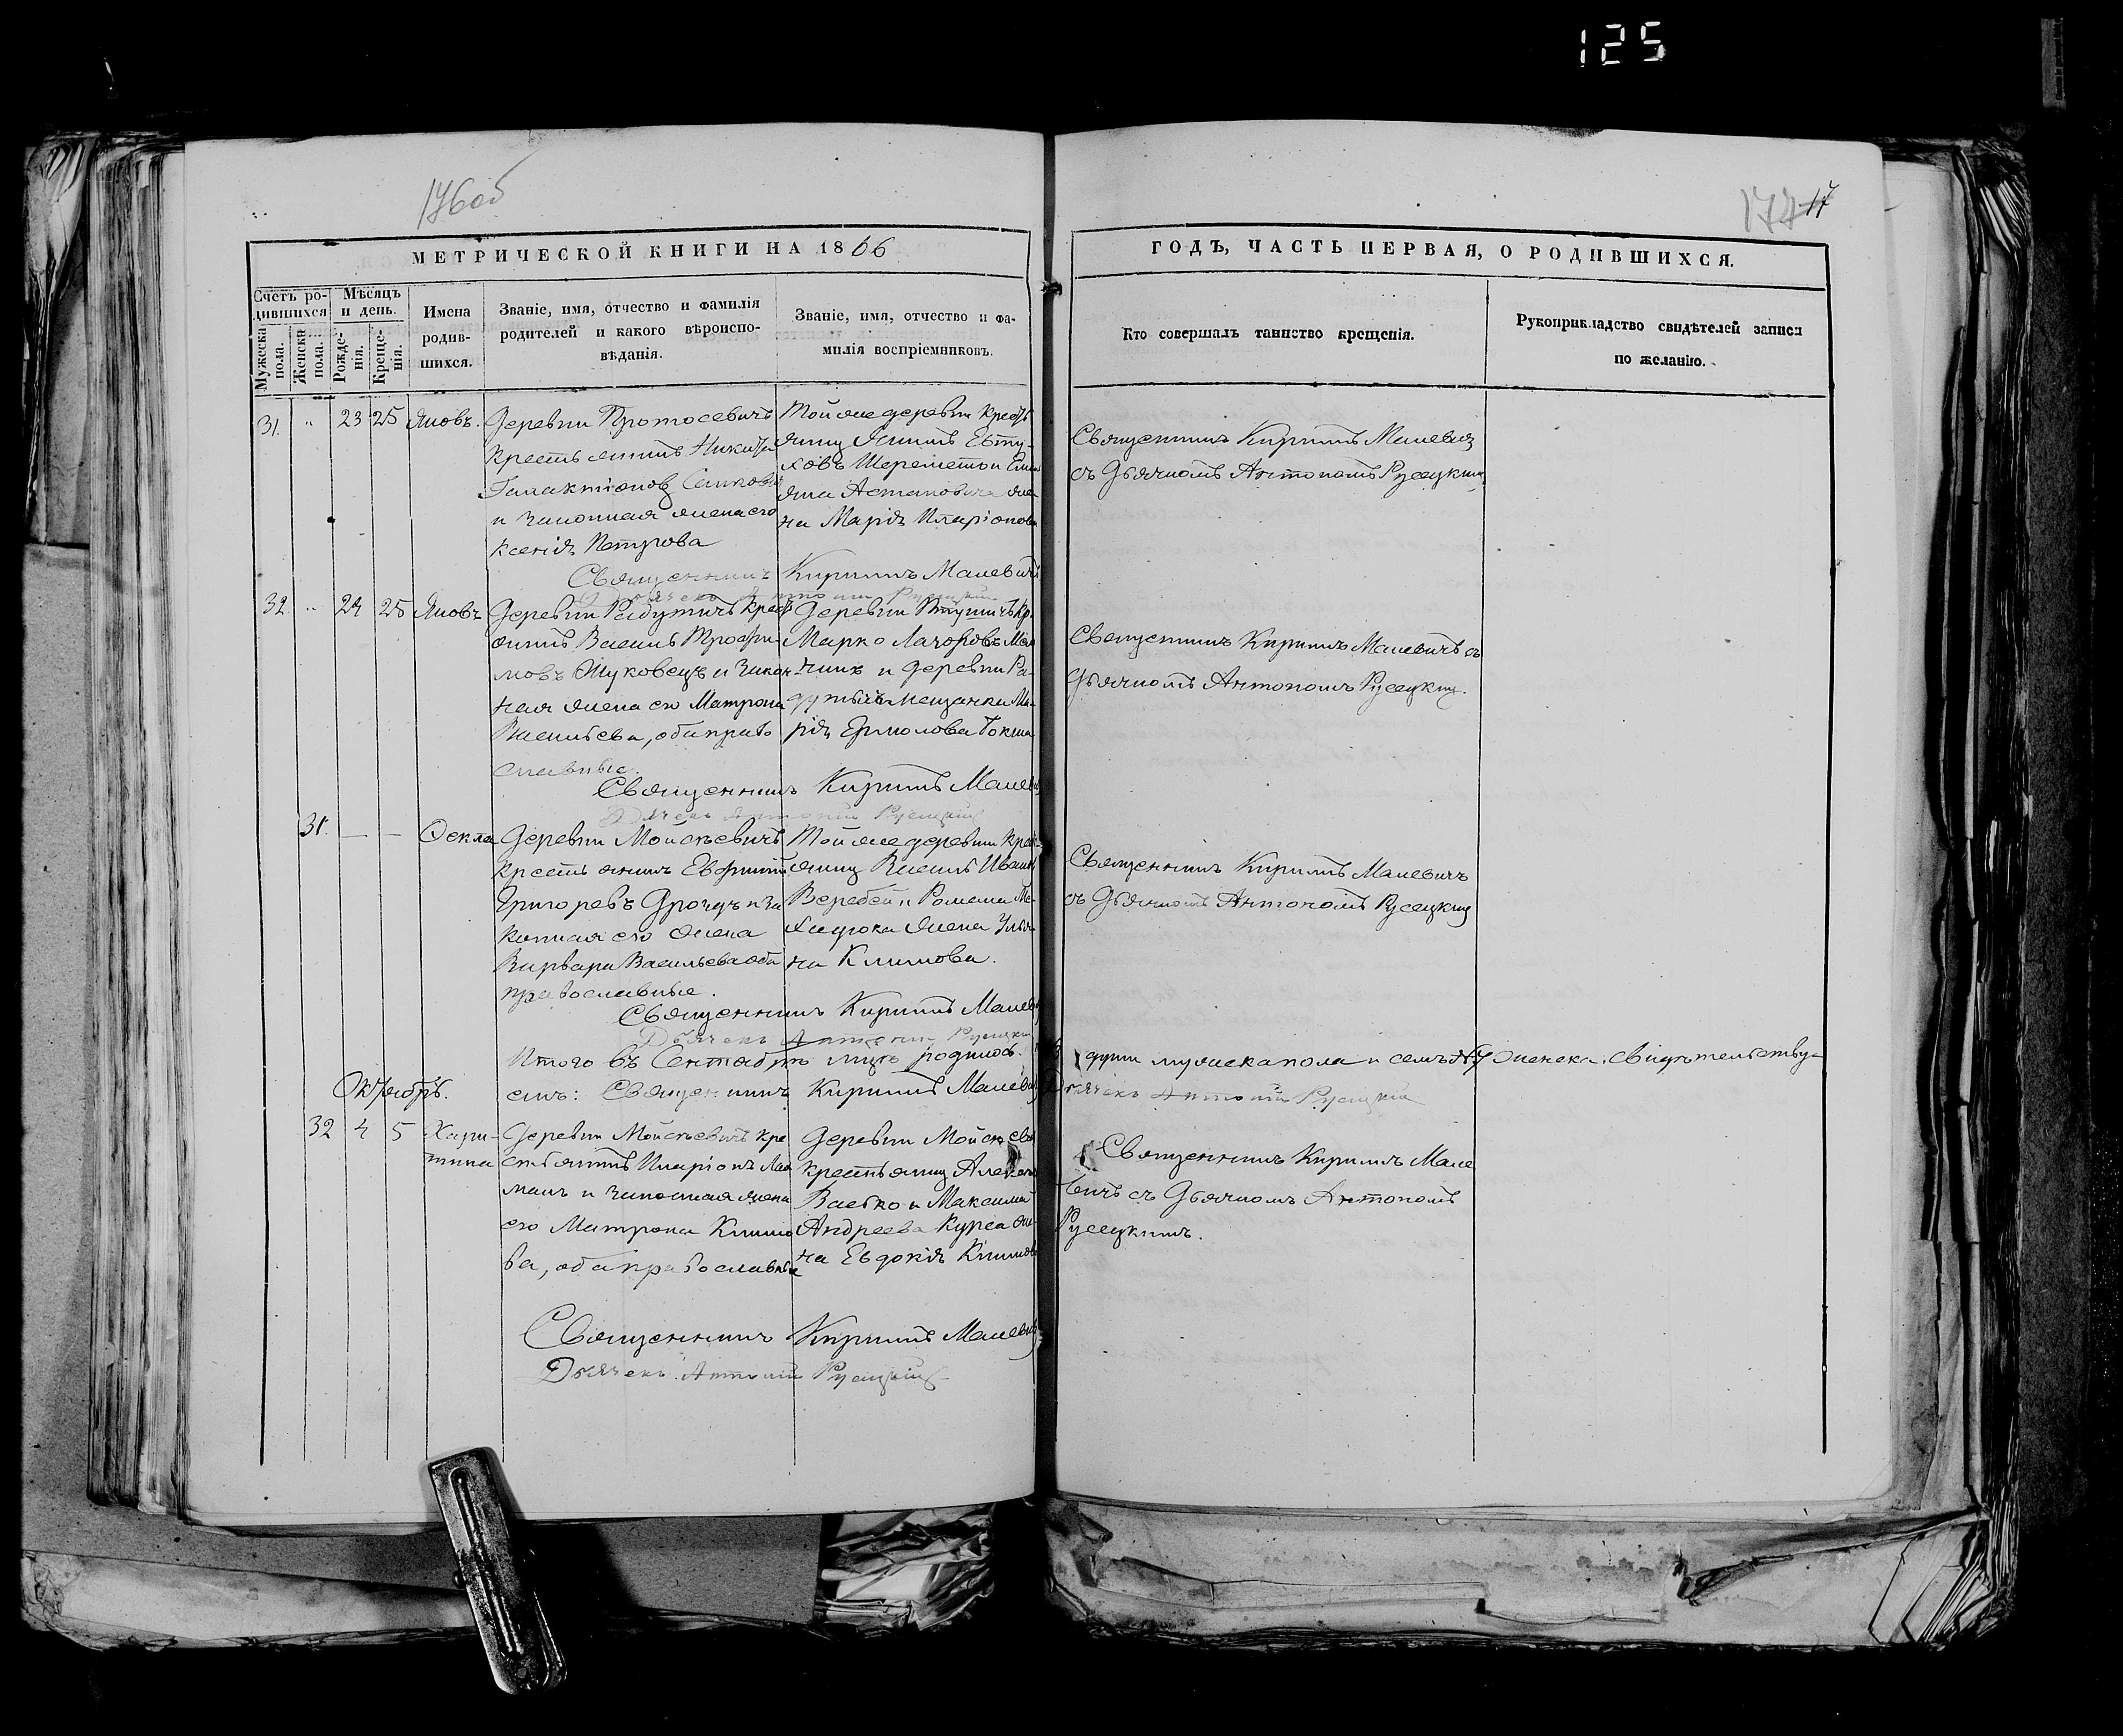 125
176об
177 17
МЕТРИЧЕСКОЙ КНИГИ НА 1866
ГОДЪ, ЧАСТЬ ПЕРВАЯ, О РОДИВШИХСЯ.
Счетъ ро-
дившихся
Мужеска
пола.
Женска
пола.
Мѣсяцъ
и день.
Рожде-
нія.
Креще-
нія.
Имена
родив-
шихся.
Званіе, имя, отчество и фамилія
родителей и какого вѣроиспо-
вѣданія.
Званіе, имя, отчество и фа-
милія воспріемниковъ.
Кто совершалъ таинство крещенія.
Рукоприкладство свидѣтелей записи
по желанію.
31. " 23 25 Яковъ.
Деревни Протосевичъ
крестьянинъ Никита
Галактіоновъ
и законная жена его
Ксенія Петрова
Той же деревни крест
янинъ Евту-
ховъ Шеремето и
жe-
на Марія Иларіонова
Священникъ Кирилъ Малевичъ
съ Дьячкомъ Антономъ Русецкимъ
Священникъ Кирилъ Малевичъ
32 " 24 25 Яковъ
Деревни Радутичъ крест
янинъ Василь Трофи-
мовъ Жуковецъ и закон
ная жена его Матрона
Васильева, оба право
славные.
Деревни кр.
Марко
и деревни Ра-
дутичъ мещанка Ма-
рія Ермолова
Священникъ Кирилъ Малевичъ съ
Дьячкомъ Антономъ Русецким.
Священникъ Кирилъ Малеви
Дьячекъ Антоній Русецкій
31. — — Фекла
Деревни Мойсѣевичъ
крестьянинъ Евфимій
Григорьевъ Дроздъ и за
конная его жена
Варвара Васильева оба
православные.
Той же деревни крест
янинъ Василь Иванов
Верабей и Романа
жена Улья-
на Климова.
Священникъ Кирилъ Малевичъ
съ Дьячкомъ Антономъ Русецким
Священникъ Кирилъ Малеви
Дьячекъ Антоній Русецкій
Итого въ Сентябрѣ мцѣ родилось
души мужеска пола и семь 7 женска. свидѣтельству-
емъ: Священникъ Кирилъ Малевич
Дьячекъ Антоній Русецкій
Октябрь.
32 4 5 Хари-
тина
Деревни Мойсѣевичъ кре
стьянинъ Иларіонъ
и законная жена
его Матрона Климо
ва, оба православные
Деревни Мойсѣеви
крестьянинъ
Васько и Максима
Андреева Курса же-
на Евдокія Климов
Священникъ Кирилъ Мале
вичъ съ Дьячкомъ Антономъ
Русецкимъ.
Священникъ Кирилъ Малевич
Дьячекъ Антоній Русецкій